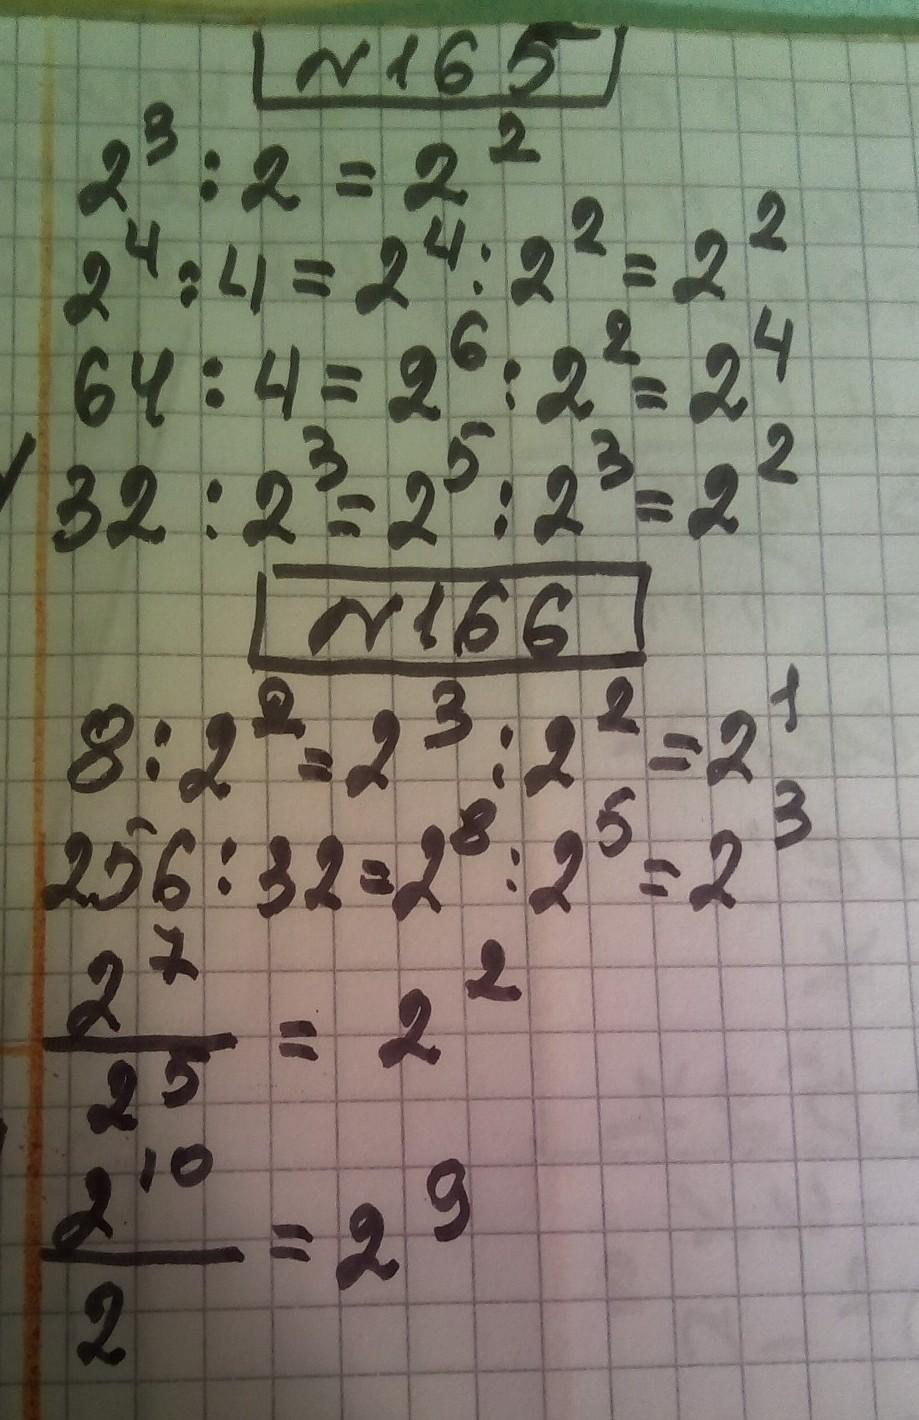 №165
2³ : 2 = 2²
2⁴ : 4 = 2⁴ : 2² = 2²
64 : 4 = 2⁶ : 2² = 2⁴
32 : 2³ = 2⁵ : 2³ = 2²
№166
8 : 2² = 2³ : 2² = 2¹
256 : 32 = 2⁸ : 2⁵ = 2³
2⁷/2⁵ = 2²
2¹⁰/2 = 2⁹